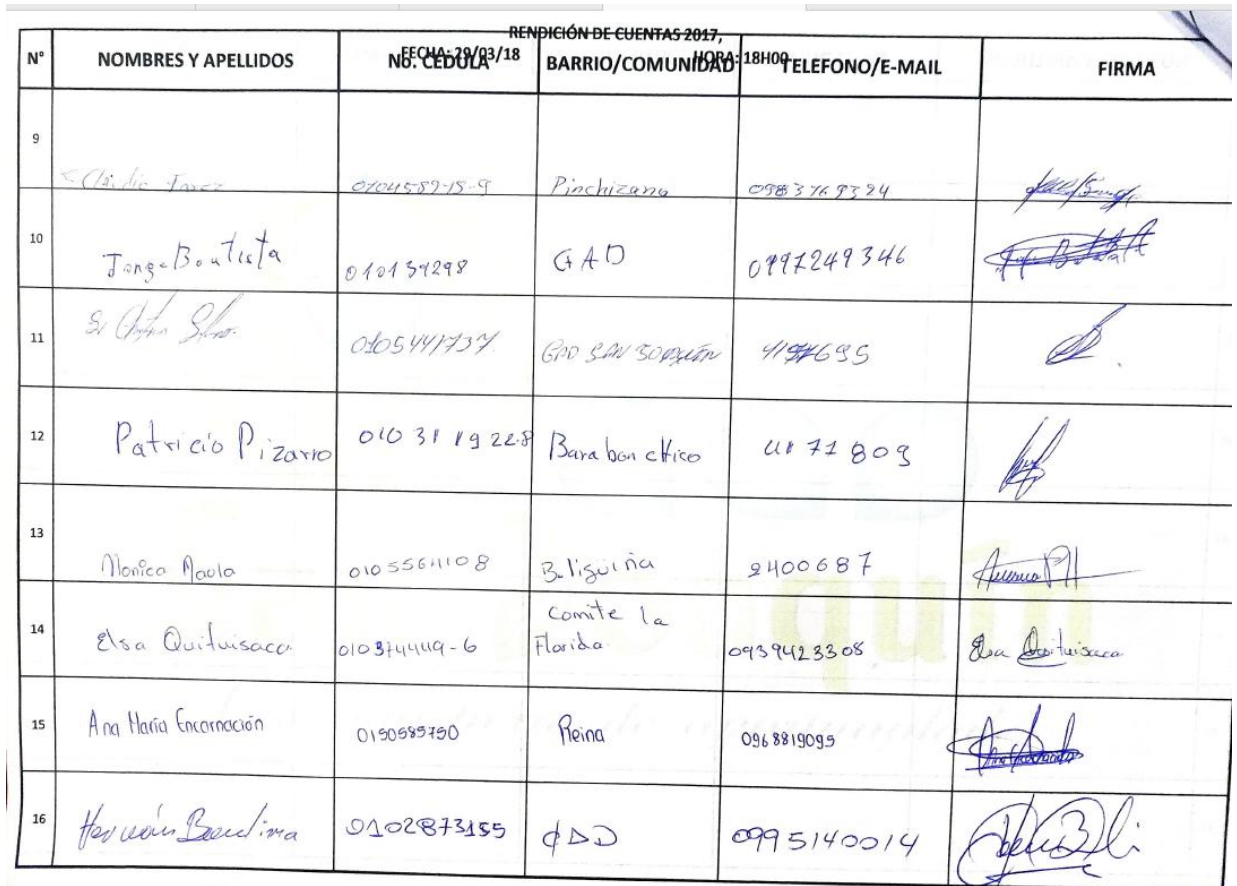 RENDICIÓN DE CUENTAS 2017,
FECHA: 29/03/18 HORA: 18H00
N° NOMBRES Y APELLIDOS No. CEDULA BARRIO/COMUNIDAD TELEFONO/E-MAIL FIRMA
9 Pinchizana 0983769324
10 Jorge Bautista 010139298 GAD 0997249346
11 0105441737 GAD SAN JOAQUÍN
12 Patricio Pizarro 010 31 19 228 Barabon chico 4171809
13 Monica Paola 2400687
14 Elsa Quituisaca 010374449-6 Comite la
Florida 0939423308 Elsa Quituisaca
15 Ana María Encarnación 0150585750 Reina 0968819095
16 0102873155 GAD 0995140014